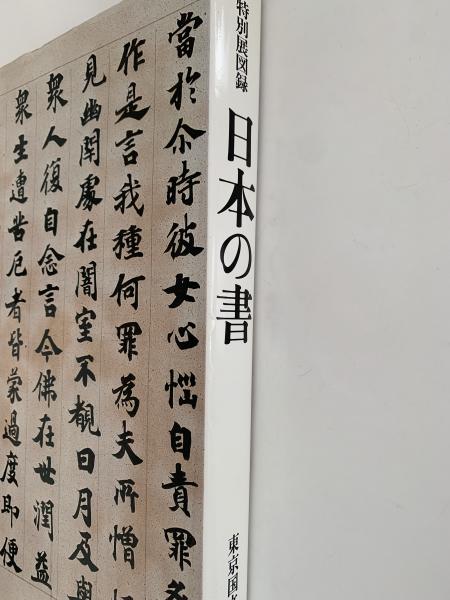 特別展図録 日本の書 東京国
當於尒時彼女心惱自責罪
作是言我種何罪為夫所憎
見幽閇處在闇室不覩日月及與
衆人復自念言今佛在世潤益
衆生遭苦厄者皆蒙過度即便